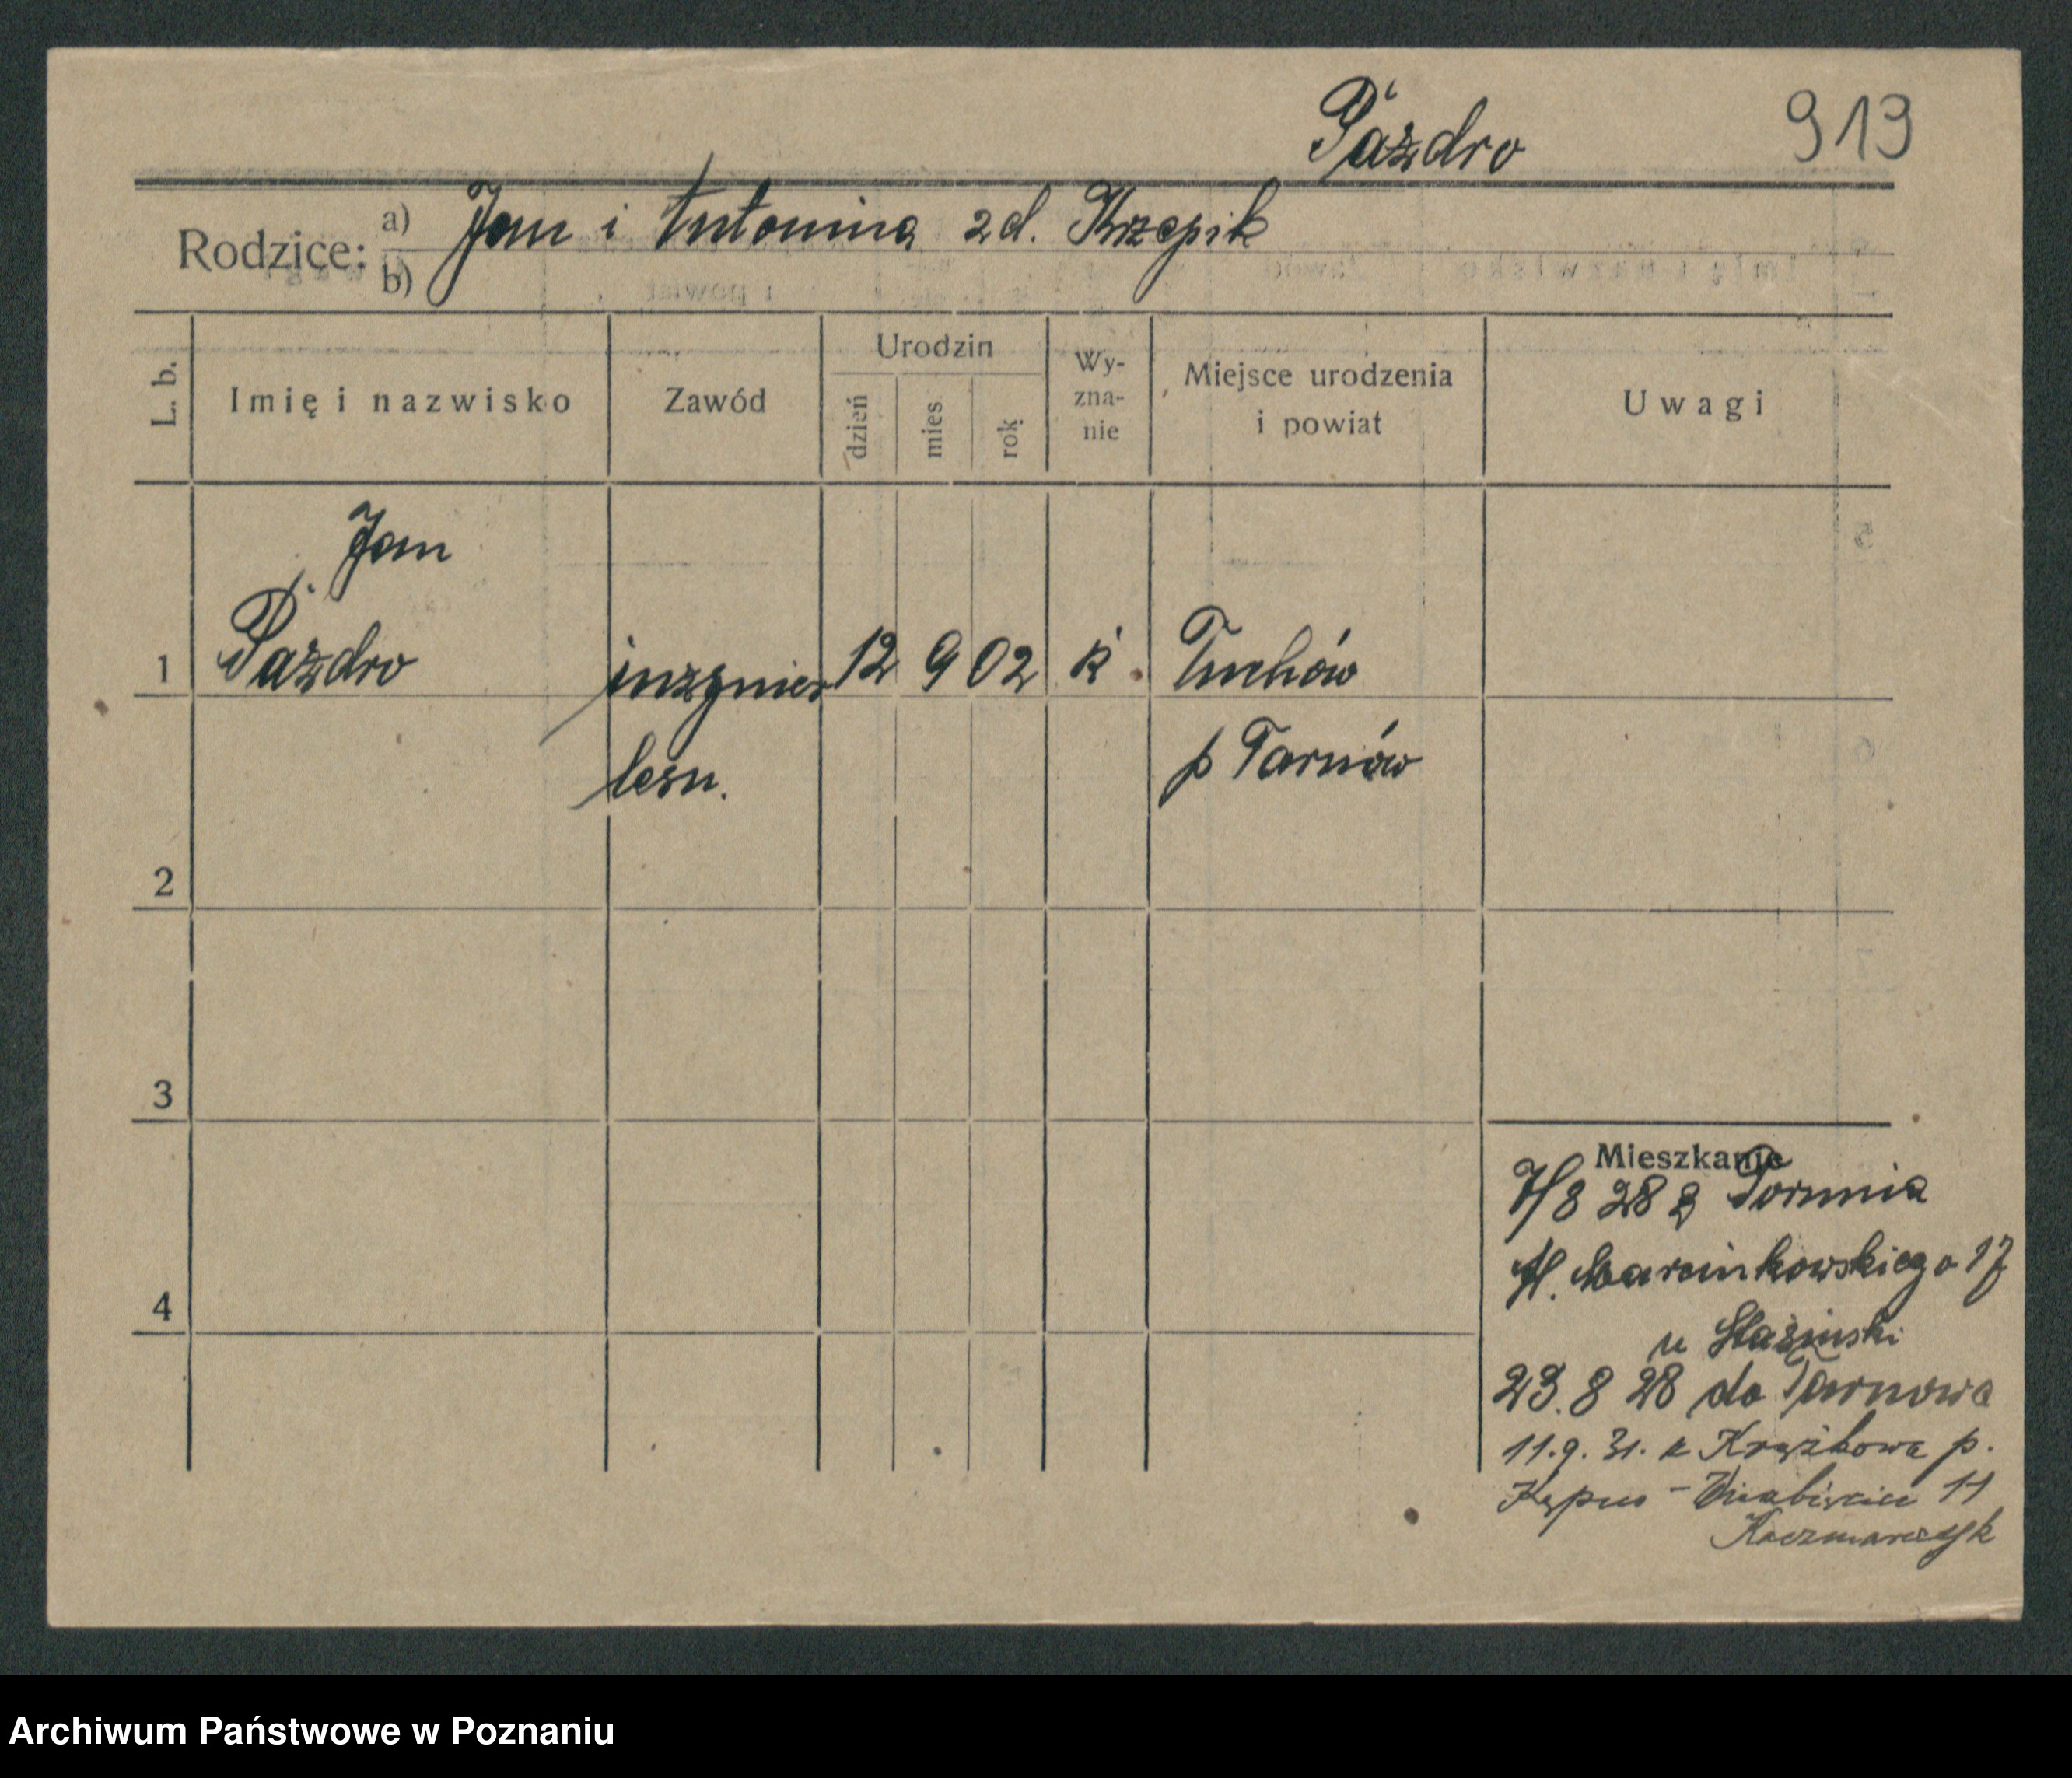 Paździo 913
Rodzice: a) Jan i Antonina zd. Krzepik
b)
L. b.
Imię i nazwisko
Zawód
Urodzin
dzień
mies.
rok
Wy-
zna-
nie
Miejsce urodzenia
i powiat
Uwagi
Jan
1 Paździo inżynier 12 9 02 k. Tuchów
leśn. p Tarnów
2
3
4
Mieszkanie
7/8 28 z Torunia
Al. Marcinkowskiego 17
u Stażinski
23. 8 28 do Tarnowa
11. 9. 31. z Krążkowa p.
Kępno - 11
Kaczmarczyk
Archiwum Państwowe w Poznaniu